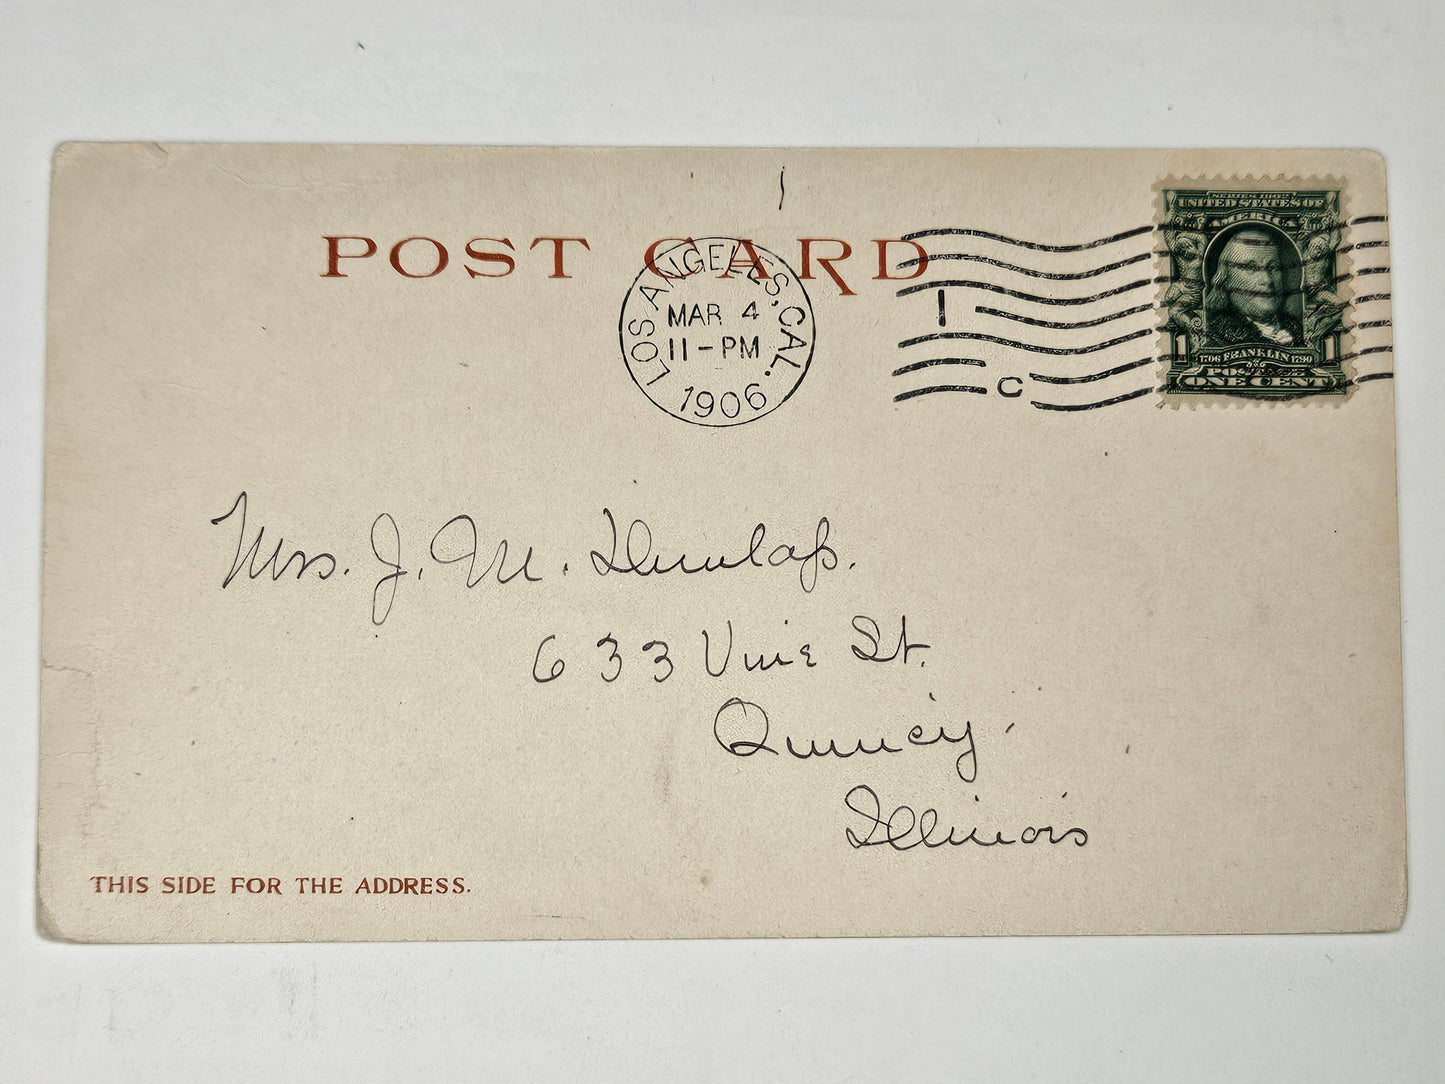 POST CARD
LOS ANGELES, CAL.
MAR 4
11-PM
1906
1
C
SERIES 1902
UNITED STATES OF
AMERICA
1 1706 FRANKLIN 1790 1
POSTAGE
ONE CENT
Mrs. J. M. Dunlap.
633 Vine St.
Quincy.
Illinois
THIS SIDE FOR THE ADDRESS.